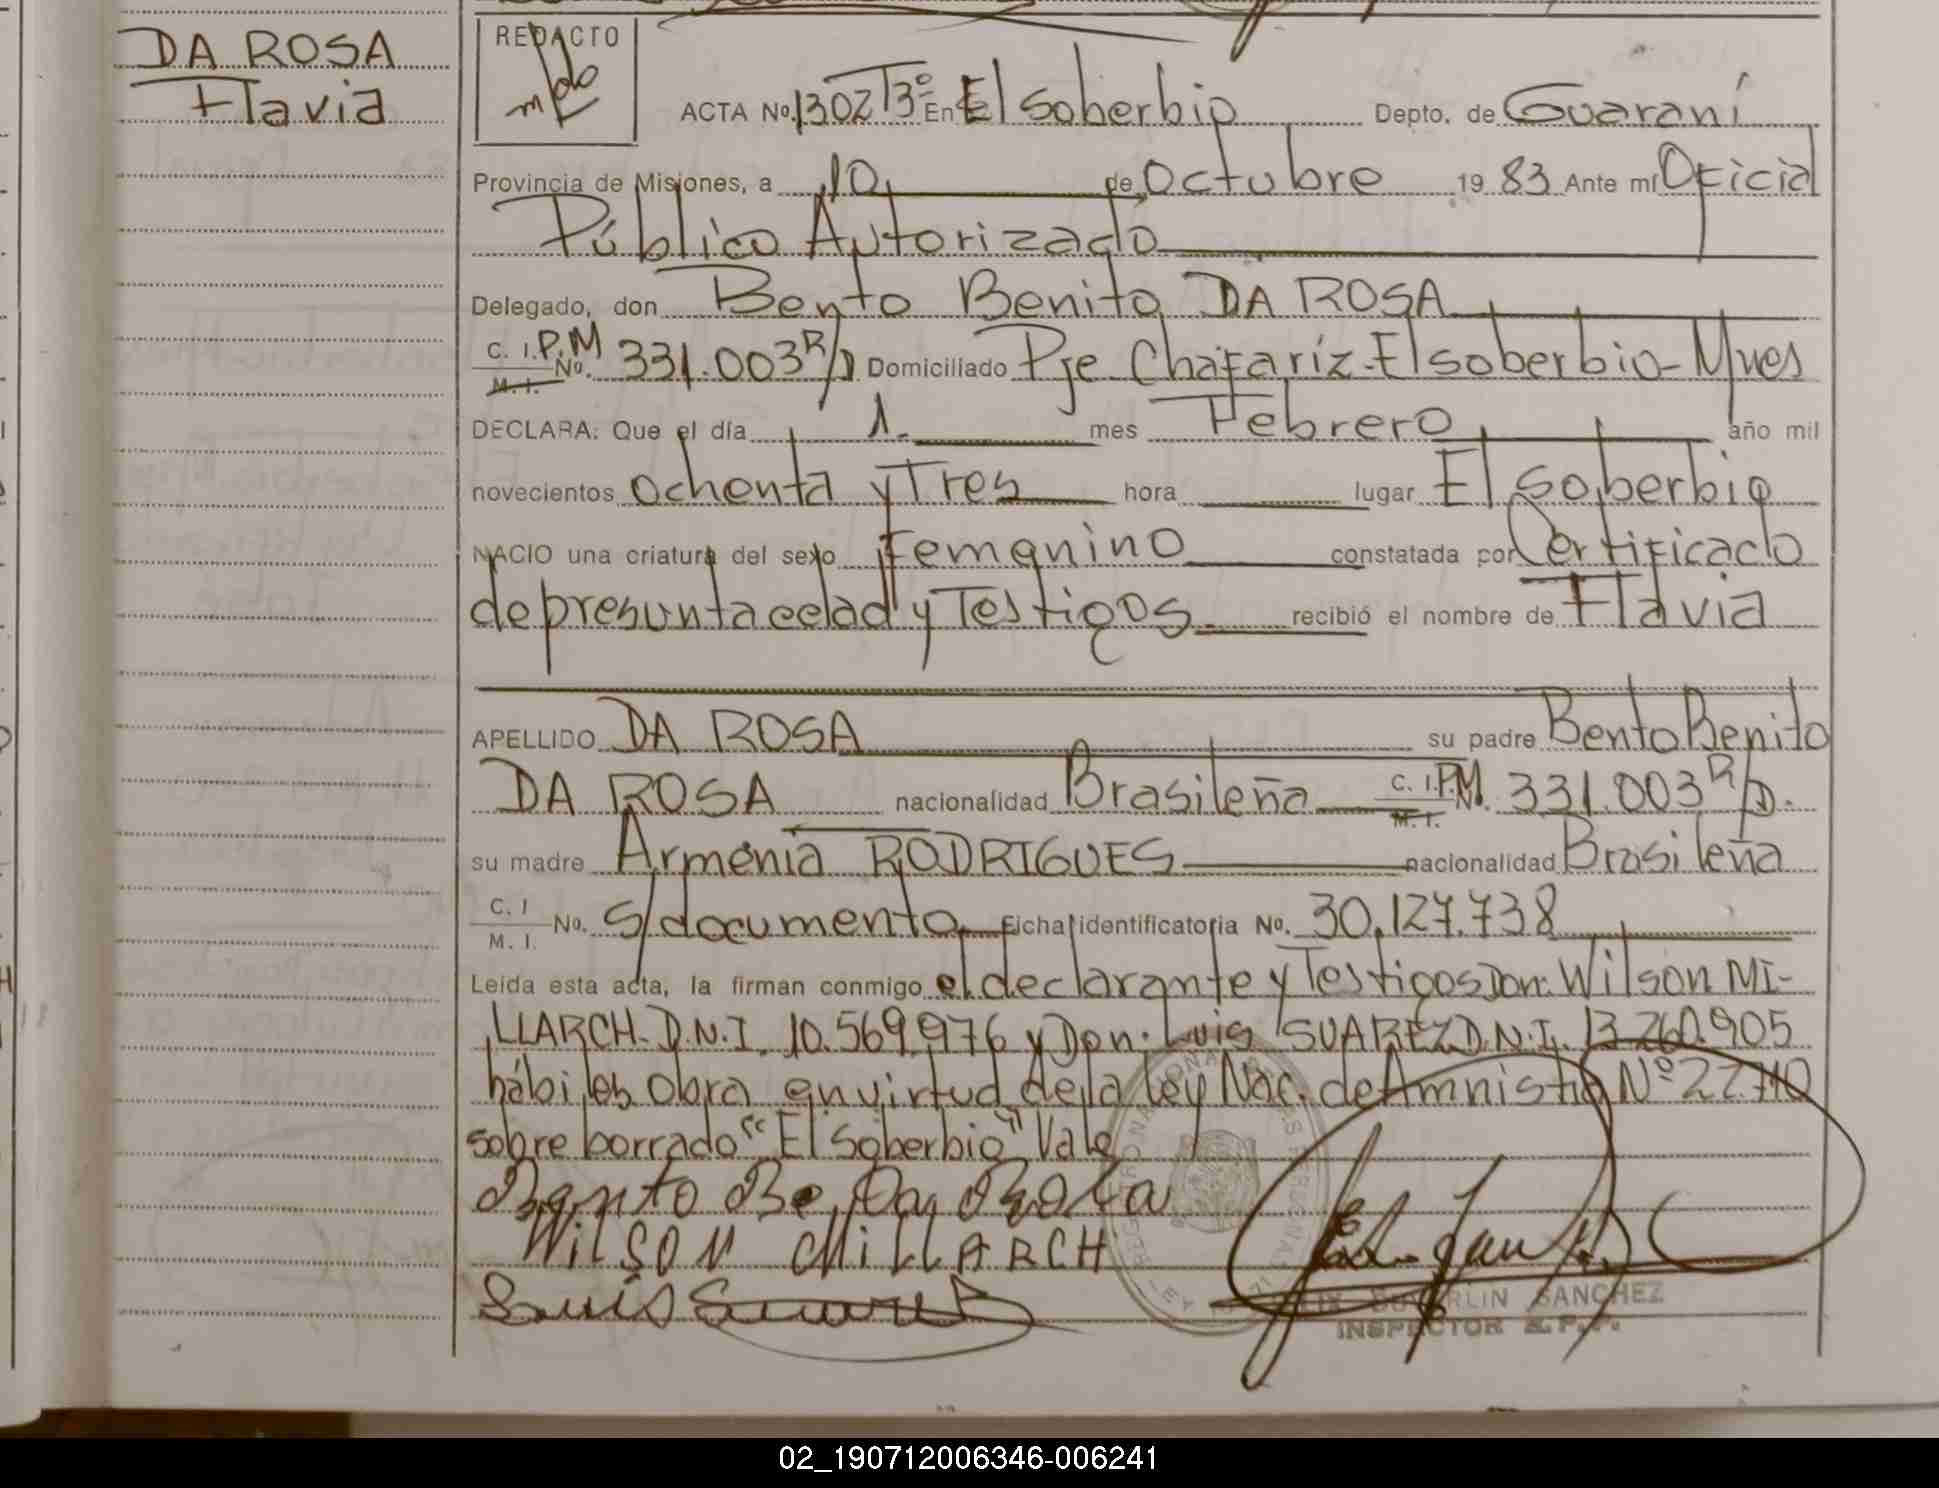 DA ROSA
Flavia
REDACTO
ACTA No. 1302 T3º En El Soberbio Depto. de Guaraní
Provincia de Misiones, a 10 de Octubre 19 83 Ante mí Oficial
Público Autorizado
Delegado, don Bento Benito DA ROSA
C. I. P.M M. I. No. 331.003 R/D Domiciliado Pje Chafaríz - El soberbio - Mnes
DECLARA: Que el día 1. mes Febrero año mil
novecientos ochenta y Tres hora lugar El soberbio
NACIO una criatura del sexo Femenino constatada por Certificado
de presunta edad y Testigos. recibió el nombre de Flavia
APELLIDO DA ROSA su padre Bento Benito
DA ROSA nacionalidad Brasileña C. I. P.M. M. I. 331.003 R/D.
su madre Armenia RODRIGUES nacionalidad Brasileña
C. I M. I. No. S/documento Ficha identificatoria No. 30.127.738
Leída esta acta, la firman conmigo el declarante y Testigos Don: Wilson MI-
LLARCH - D.N.I. 10.569.976 y Don: Luis SUAREZ D.N.I. 13.260.905
hábiles Obra en virtud de la Ley Nac. de Amnistia Nº 22.710
sobre borrado "El Soberbio" Vale
Bento Be Da Rosa
WILSON MILLARCH
Luis Suarez
SANCHEZ
INSPECTOR
02_190712006346-006241